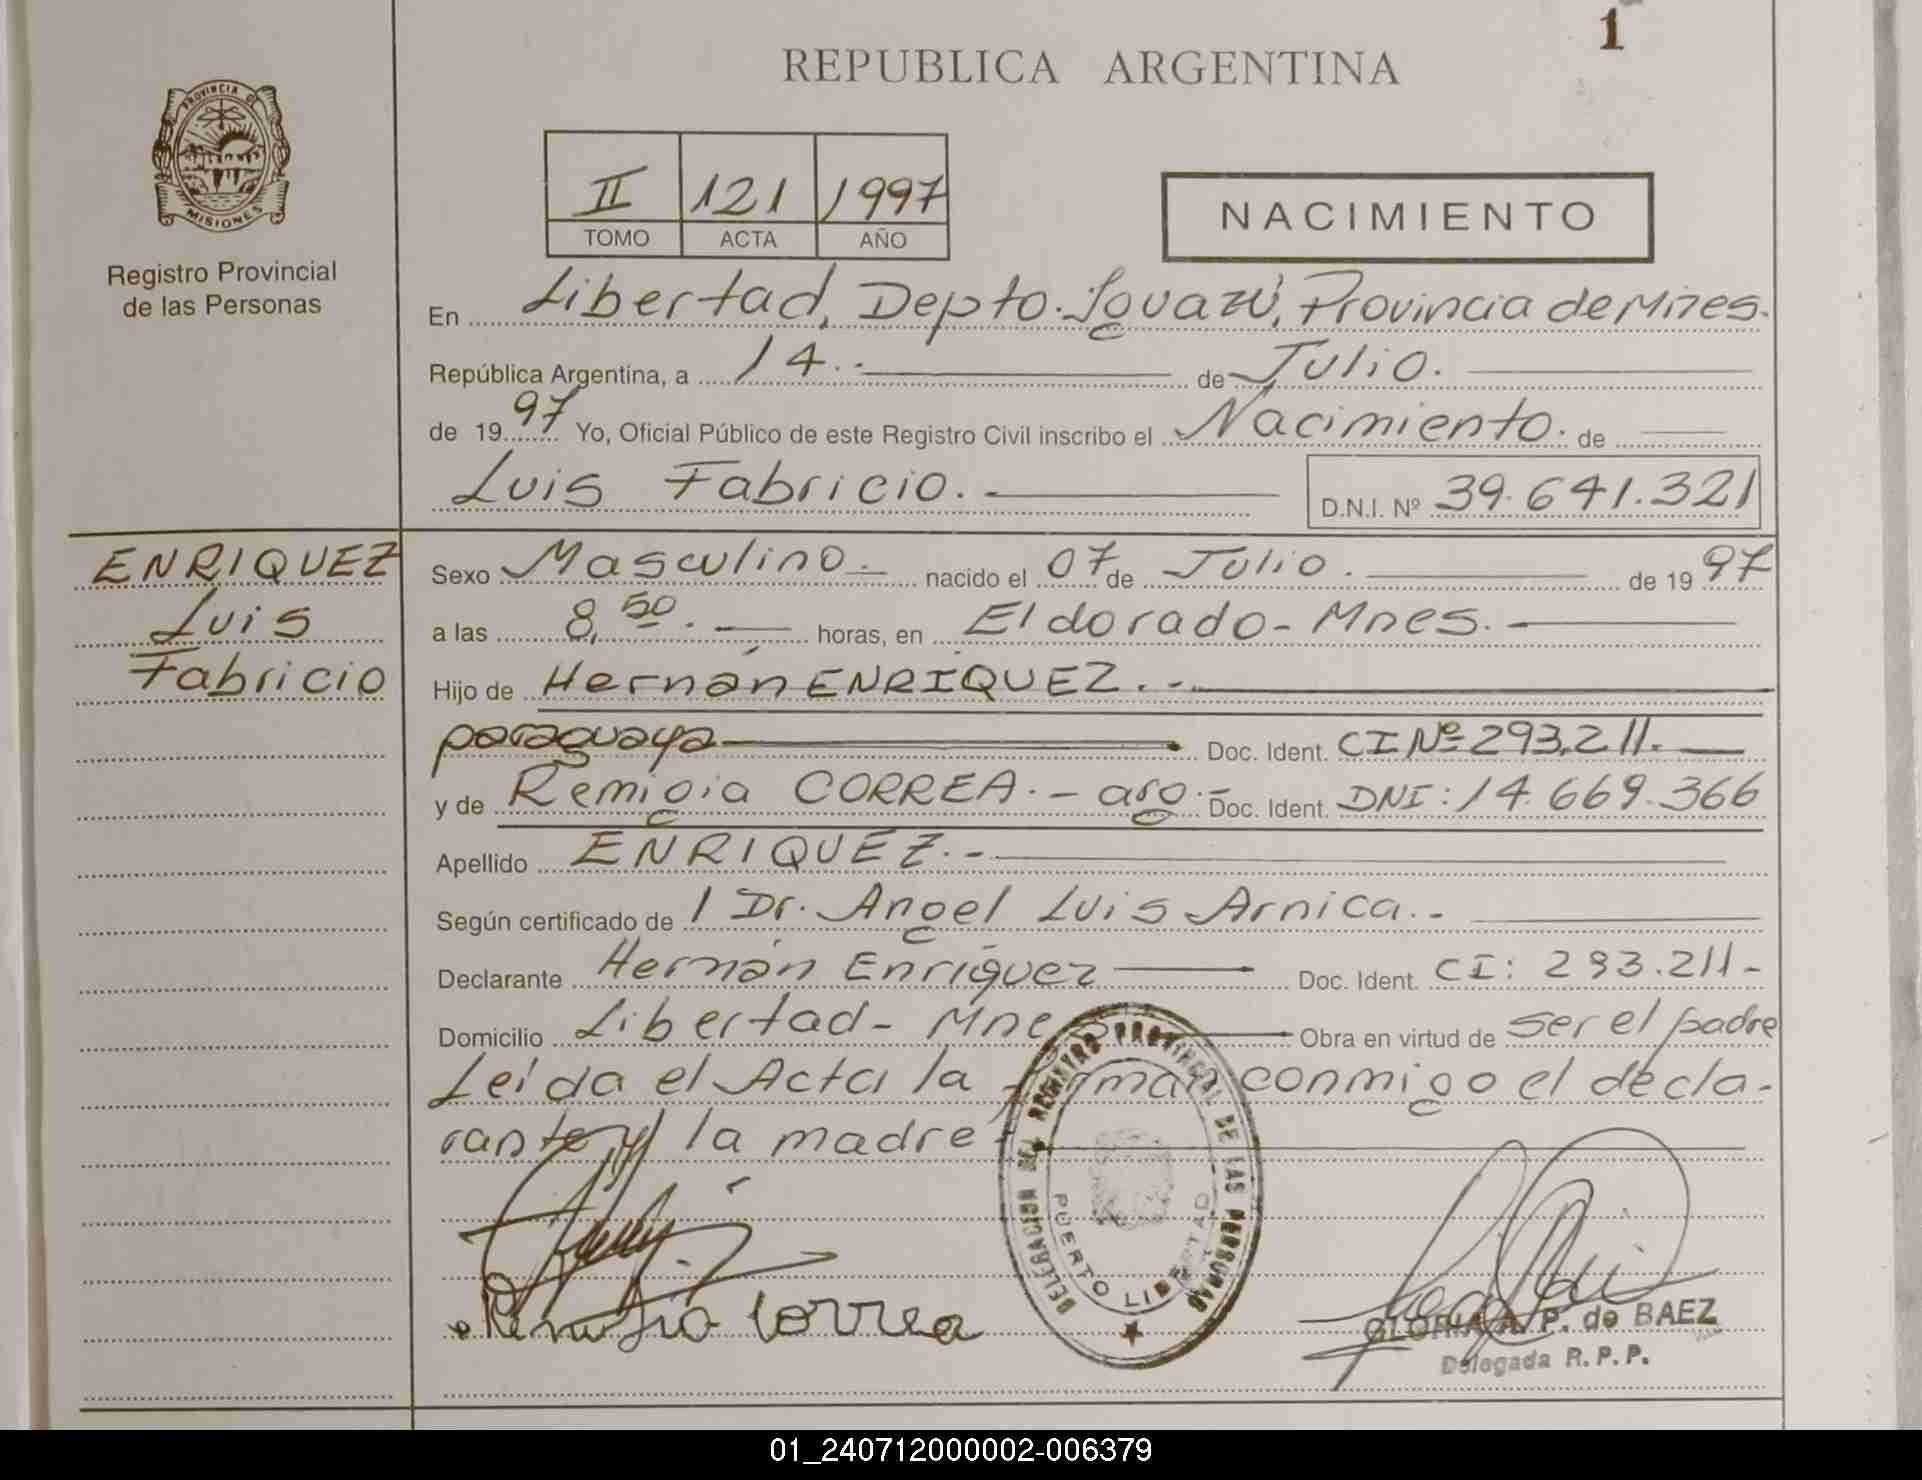 1
REPUBLICA ARGENTINA
PROVINCIA DE
MISIONES
Registro Provincial
de las Personas
II 121 1997
TOMO ACTA AÑO
NACIMIENTO
En Libertad, Depto. Iguazú, Provincia de Mnes.
República Argentina, a 14.- de Julio.
de 1997 Yo, Oficial Público de este Registro Civil inscribo el Nacimiento. de
Luis Fabricio. - D.N.I. Nº 39.641.321
ENRIQUEZ
Luis
Fabricio
Sexo Masculino.- nacido el 07 de Julio. de 1997
a las 8,50. - horas, en Eldorado - Mnes. -
Hijo de Hernán ENRIQUEZ. .-
paraguaya Doc. Ident. CI Nº 293.211. -
y de Remigia CORREA. - arg.- Doc. Ident. DNI: 14.669.366
Apellido ENRIQUEZ. -
Según certificado de 1 Dr. Angel Luis Arnica. -
Declarante Hernán Enríquez Doc. Ident. CI: 293.211-
Domicilio Libertad - Mnes Obra en virtud de ser el padre
Leída el Acta la firman conmigo el decla-
rante y la madre -
DELEGACION DEL REGISTRO PROVINCIAL DE LAS PERSONAS
PUERTO LIBERTAD
Remigia Correa
GLORIA A. P. de BAEZ
Delegada R. P. P.
01_240712000002-006379